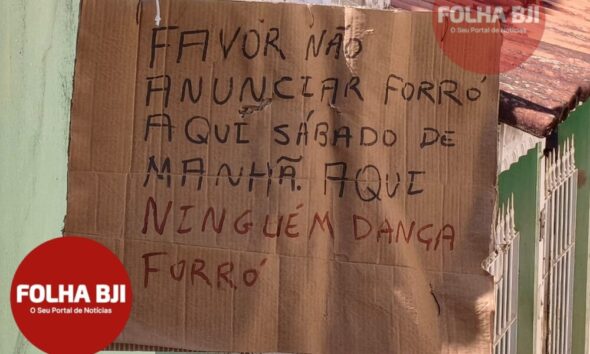 FOLHA BJI
O Seu Portal de Notícias
FAVOR NÃO
ANUNCIAR FORRÓ
AQUI SÁBADO DE
MANHÃ. AQUI
NINGUÉM DANÇA
FORRÓ
FOLHA BJI
O Seu Portal de Notícias